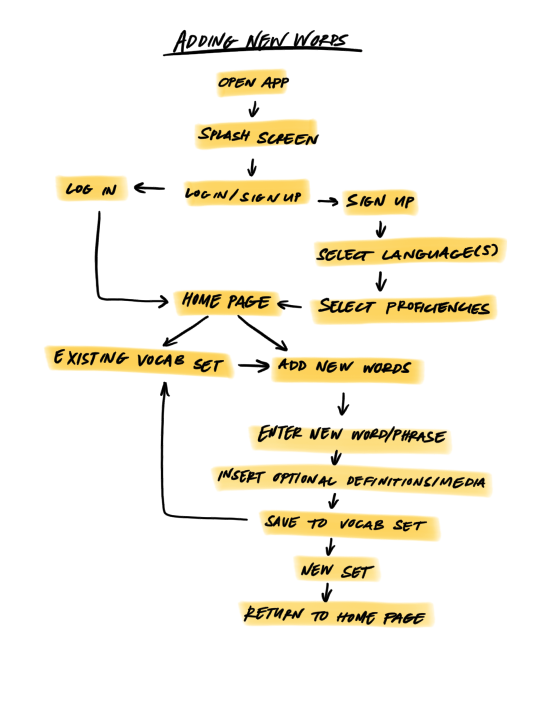 ADDING NEW WORDS
OPEN APP
SPLASH SCREEN
LOG IN
LOG IN/SIGN UP
SIGN UP
SELECT LANGUAGE(S)
HOME PAGE
SELECT PROFICIENCIES
EXISTING VOCAB SET
ADD NEW WORDS
ENTER NEW WORD/PHRASE
INSERT OPTIONAL DEFINITIONS/MEDIA
SAVE TO VOCAB SET
NEW SET
RETURN TO HOME PAGE